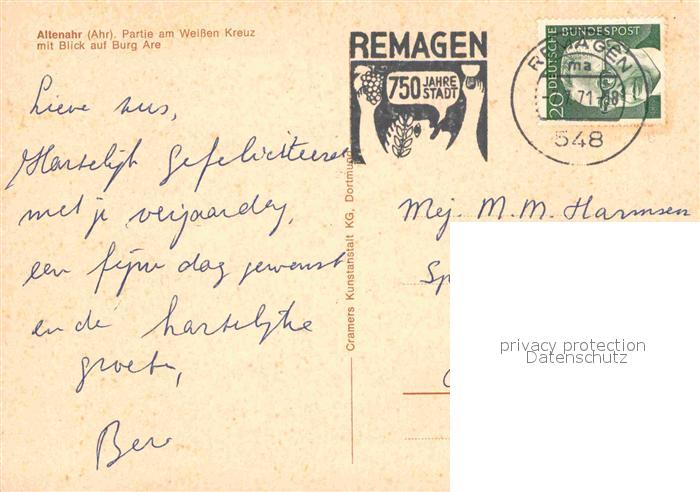 Altenahr (Ahr). Partie am Weißen Kreuz
mit Blick auf Burg Are
Lieve zus,
Hartelijk gefeliciteerd
met je verjaardag,
een fijne dag gewenst
en de hartelijke
groeten,
Ben
Cramers Kunstanstalt KG, Dortmund
REMAGEN
750 JAHRE
STADT
REMAGEN
ma
71-18
548
DEUTSCHE BUNDESPOST
20
Mej. M. M. Harmsen
Sp
privacy protection
Datenschutz